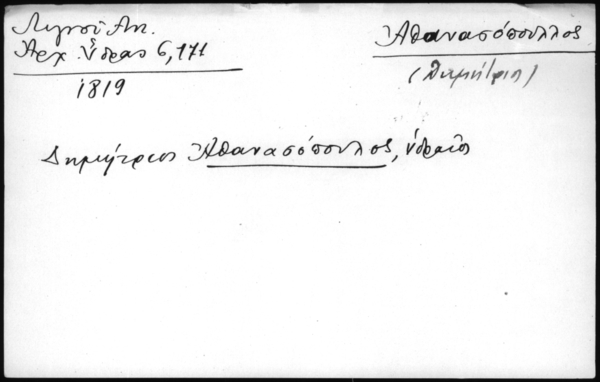 Λιγνοῦ Αντ.
Ἀρχ. Ὕδρας 6, 171
1819
Ἀθανασόπουλλος
(Δημήτρις)
Δημήτριος Ἀθανασόπουλος, ὑδραῖος